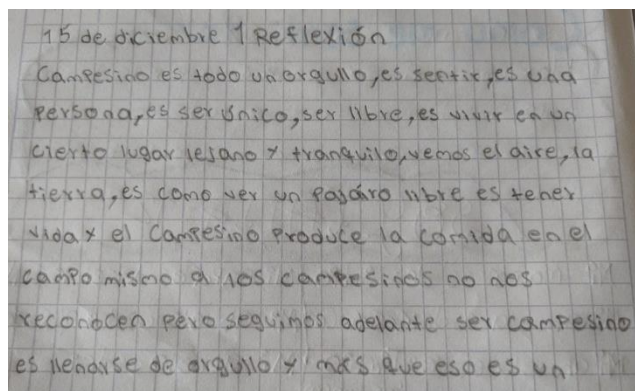 15 de diciembre 1 Reflexión
Campesino es todo un orgullo, es sentir, es una
persona, es ser único, ser libre, es vivir en un
cierto lugar lejano y tranquilo, vemos el aire, la
tierra, es como ver un pajaro libre es tener
vida y el campesino produce la comida en el
campo mismo a los campesinos no nos
reconocen pero seguimos adelante ser campesino
es llenarse de orgullo y más que eso es un